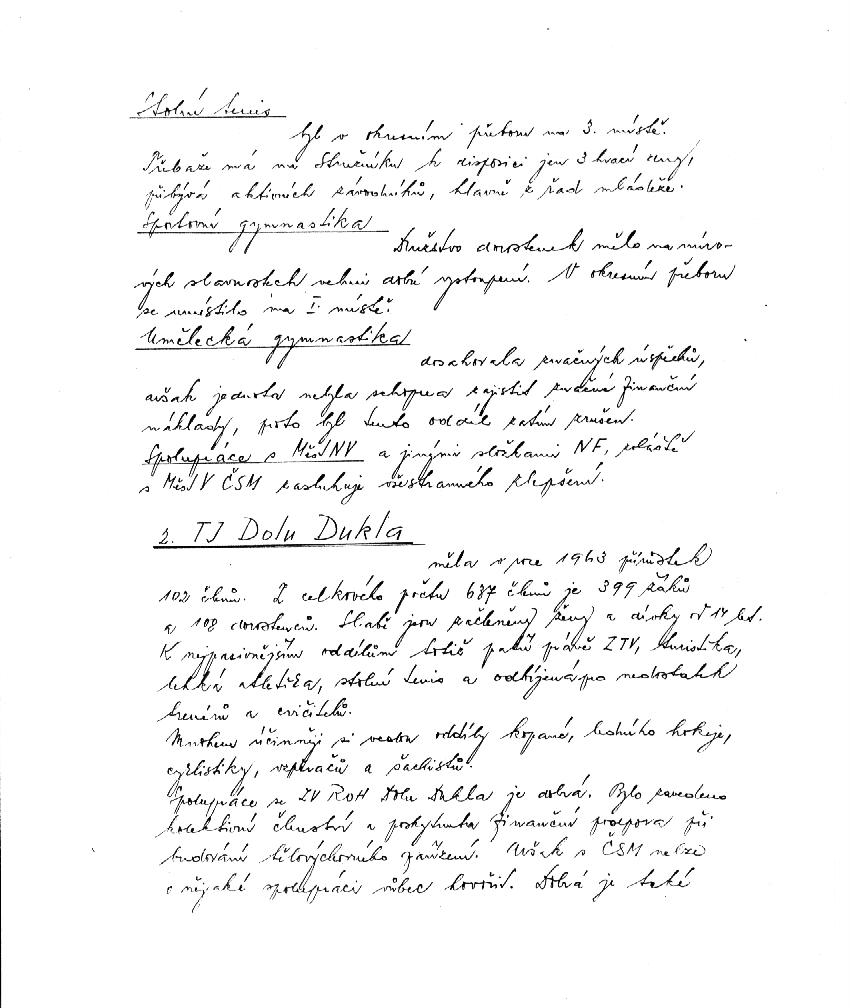 Stolní tenis
byl v okresním přeboru na 3. místě.
Třebaže má na Stružníku k disposici jen 3 hrací
přibývá aktivních závodníků, hlavně z řad mládeže.
Sportovní gymnastika
Družstvo dorostenek mělo na míro-
vých slavnostech velmi dobré vystoupení. V okresním přeboru
se umístilo na I. místě.
Umělecká gymnastika
dosahovala značných úspěchů,
avšak jednota nebyla schopna zajistit značné finanční
náklady, proto byl tento oddíl zatím zrušen.
Spolupráce s MěstNV a jinými složkami NF, zvláště
s MěstV ČSM zasluhuje všestranného zlepšení.
2. TJ Dolu Dukla
měla v roce 1963 přírůstek
102 členů. Z celkového počtu 687 členů je 399 žáků
a 108 dorostenců. Slabě jsou začleněny ženy a dívky od 14 let.
K nejpasivnějším oddílům totiž patří právě ZTV, turistika,
lehká atletika, stolní tenis a odbíjená po nedostatek
trenérů a cvičitelů.
Mnohem účinněji si vedou oddíly kopané, ledního hokeje,
cyklistiky, vzpěračů a šachistů.
Spolupráce se ZV ROH Dolu Dukla je dobrá. Bylo zavedeno
kolektivní členství a poskytnuta finanční podpora při
budování tělovýchovného zařízení. Však s ČSM nelze
o nějaké spolupráci vůbec hovořit. Dobrá je také